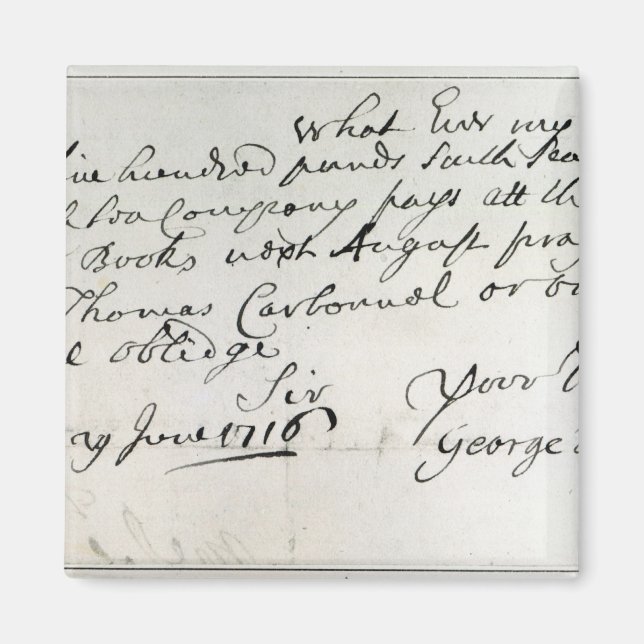 What Ever my
ive hundred pounds South Sea
Sea Company pays att th
Books next August pra
Thomas Carbonnel or
e obledge
Sir Yoor
29 June 1716 George